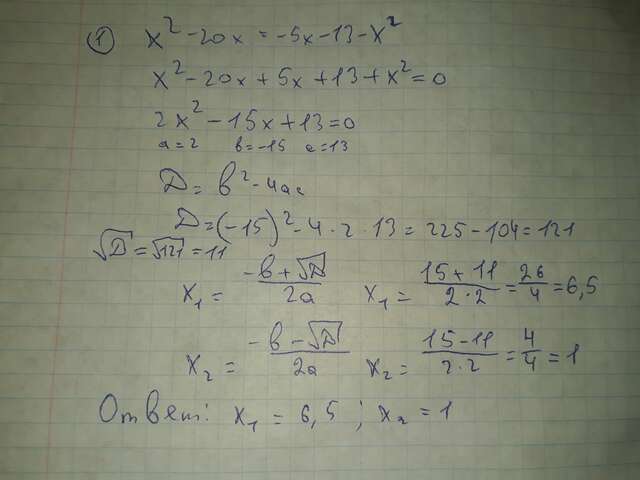 ① x² - 20x = -5x - 13 - x²
x² - 20x + 5x + 13 + x² = 0
2x² - 15x + 13 = 0
a = 2 в = -15 c = 13
D = в² - 4ac
D = (-15)² - 4 · 2 · 13 = 225 - 104 = 121
√D = √121 = 11
x₁ = (-в + √D)/2a x₁ = (15 + 11)/(2 · 2) = 26/4 = 6,5
x₂ = (-в - √D)/2a x₂ = (15 - 11)/(2 · 2) = 4/4 = 1
Ответ: x₁ = 6,5 ; x₂ = 1